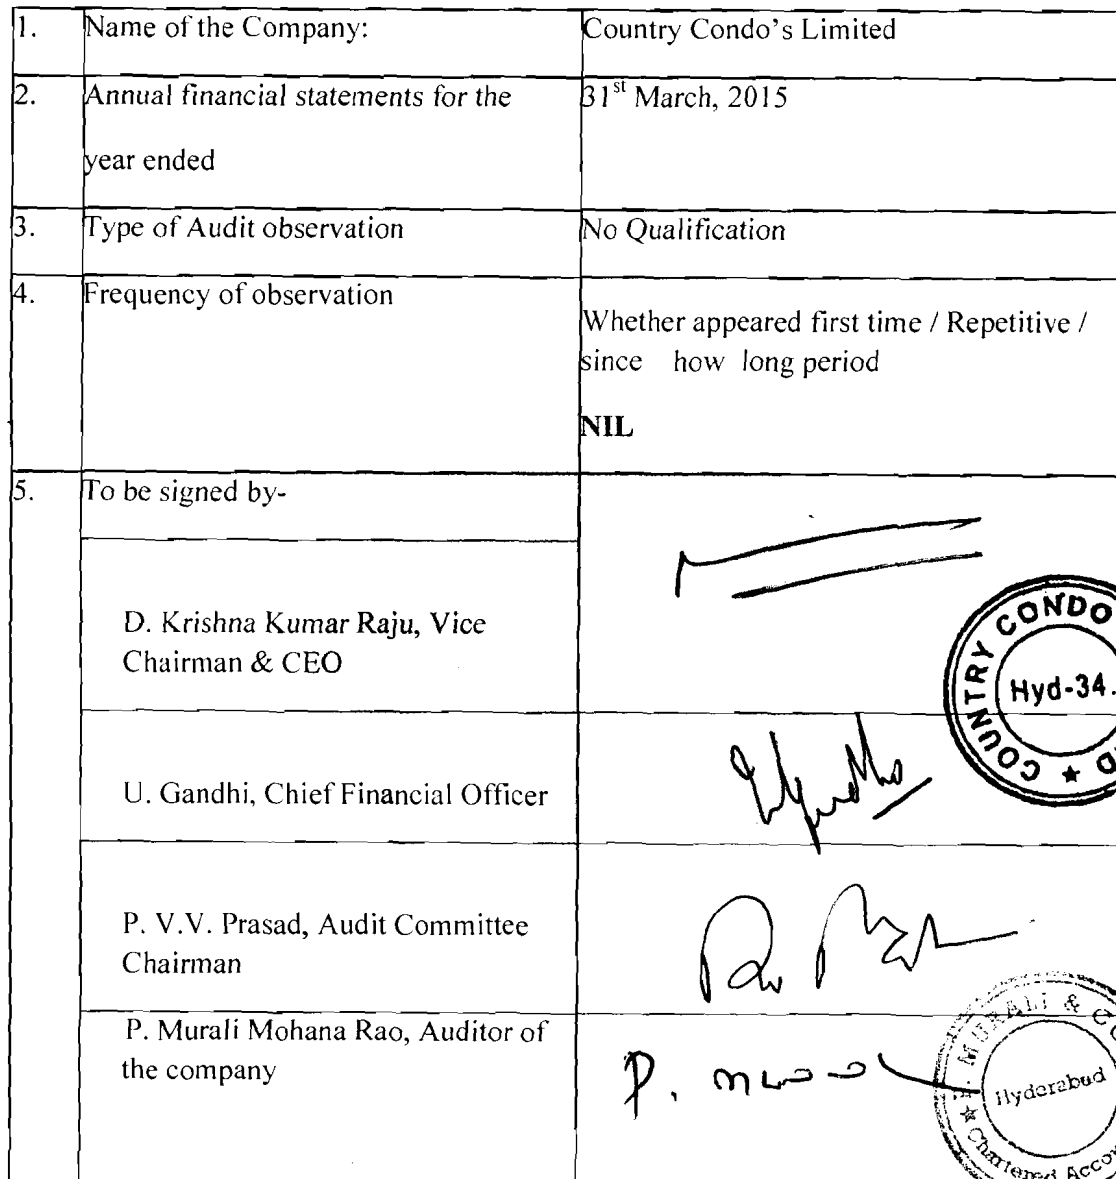 1. Name of the Company: Country Condo's Limited
2. Annual financial statements for the 31st March, 2015
year ended
3. Type of Audit observation No Qualification
4. Frequency of observation
Whether appeared first time / Repetitive /
since how long period
NIL
5. To be signed by-
D. Krishna Kumar Raju, Vice
Chairman & CEO
COUNTRY CONDO
Hyd-34.
U. Gandhi, Chief Financial Officer
P. V.V. Prasad, Audit Committee
Chairman
P. Murali Mohana Rao, Auditor of
the company
P.
MURALI & CO
Hyderabad
Chartered Accou